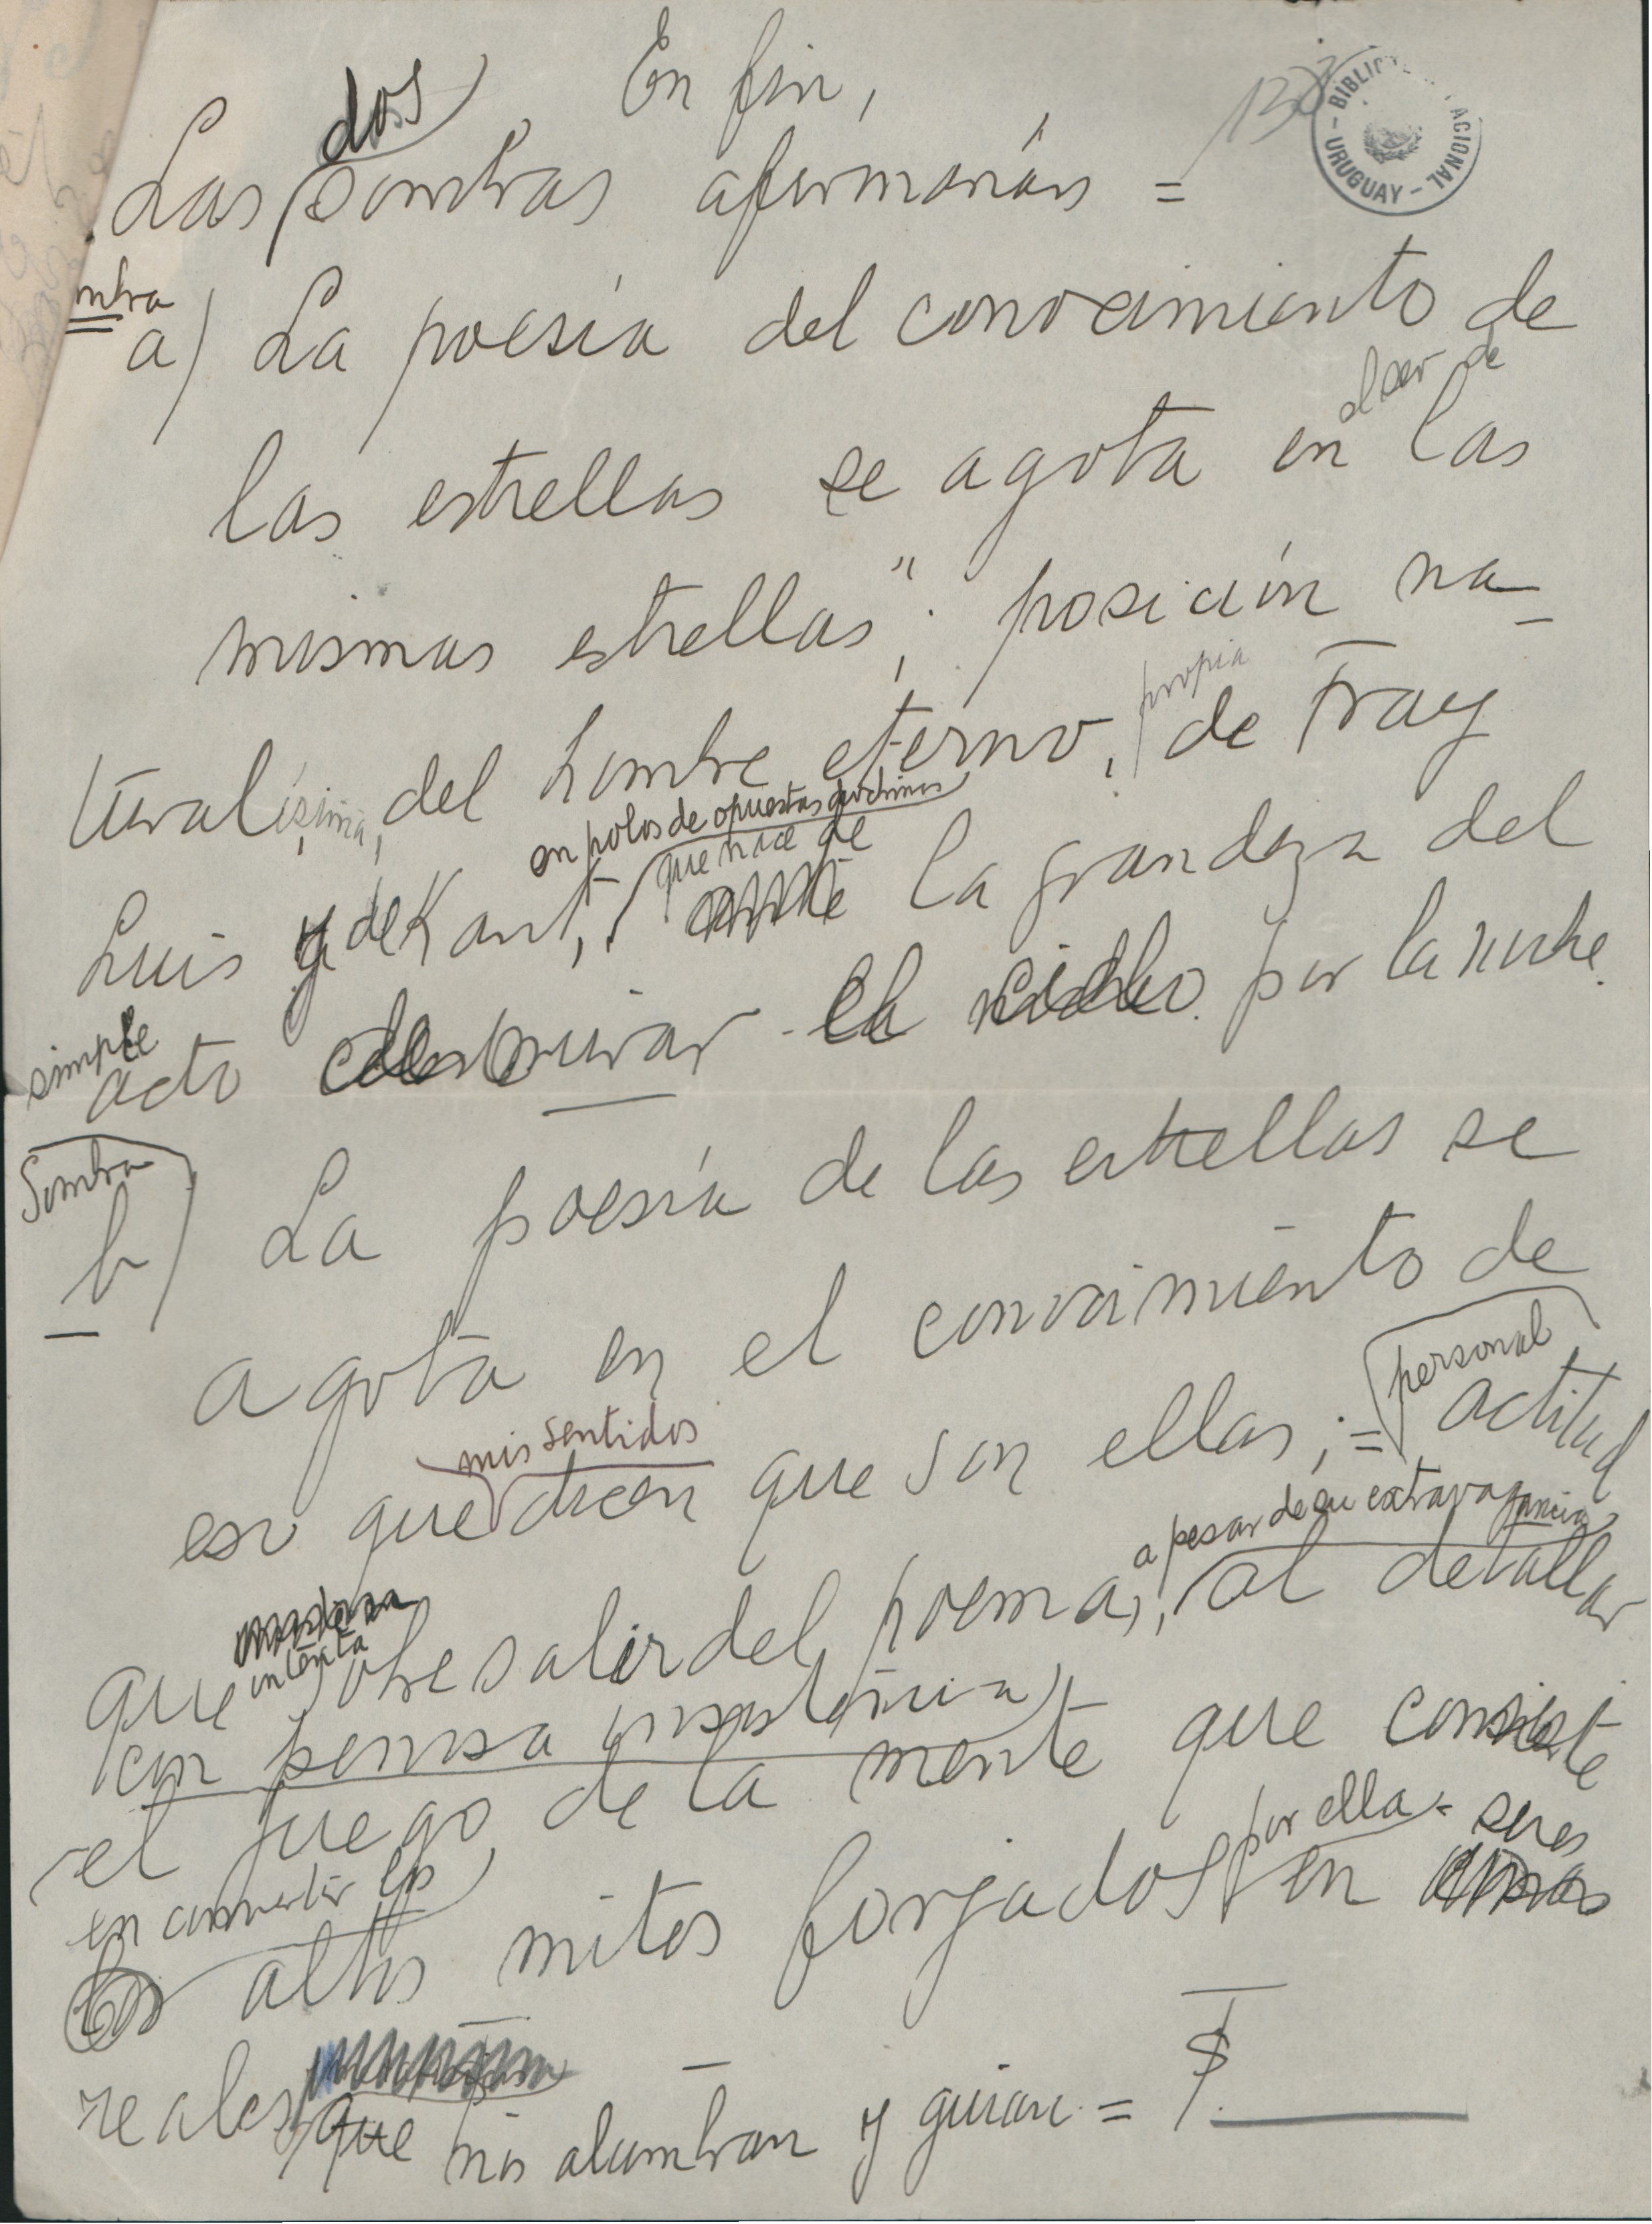 En fin,
Las dos sombras afirmarán =
130
BIBLIOTECA NACIONAL – URUGUAY –
mbra
a) La poesía del conocimiento de
las estrellas se agota en el ser de las
mismas estrellas"; posición na-
turalísima, del hombre eterno, propia de Fray
en polos de opuestas
Luis y de Kant, que nace de la grandeza del
simple acto de mirar el cielo por la noche.
Sombra
b) La poesía de las estrellas se
agota en el conocimiento de
eso que mis sentidos dicen que son ellas; = personal actitud
que intenta sobresalir del poema, a pesar de su extravagancia, al detallar
con penosa insistencia
el juego de la mente que consiste
en convertir los
altos mitos forjados por ella en seres
reales que nos alumbran y guian =